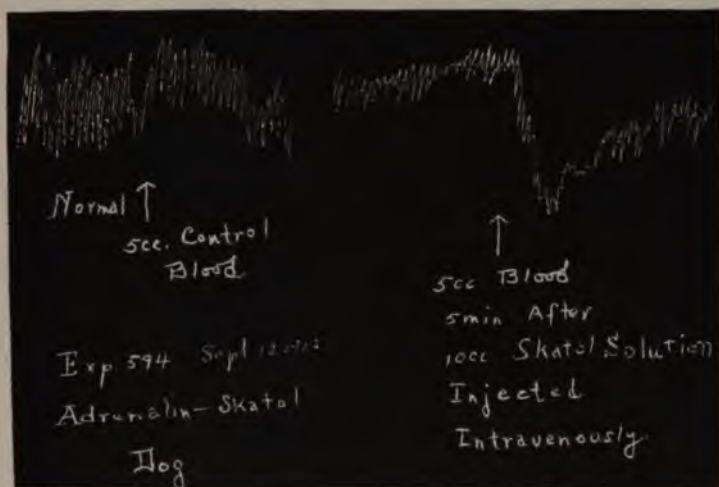 Normal
5cc. Control
Blood
Exp 594 Sept
Adrenalin-Skatol
Dog
5cc Blood
5min After
10cc Skatol Solution
Injected
Intravenously